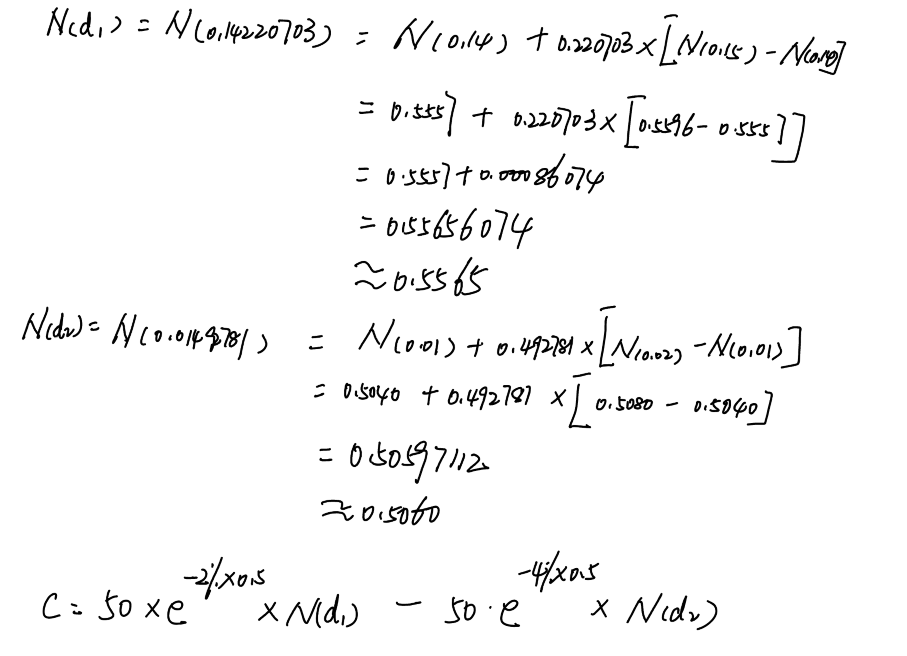 N(d₁) = N(0.14220703) = N(0.14) + 0.220703×[N(0.15) - N(0.14)]
= 0.5557 + 0.220703×[0.5596 - 0.5557]
= 0.5557 + 0.00086074
= 0.55656074
≈ 0.5565
N(d₂) = N(0.01492781) = N(0.01) + 0.492781×[N(0.02) - N(0.01)]
= 0.5040 + 0.492781 × [0.5080 - 0.5040]
= 0.50597112
≈ 0.5060
C = 50 × e^{-2%×0.5} × N(d₁) - 50·e^{-4%×0.5} × N(d₂)